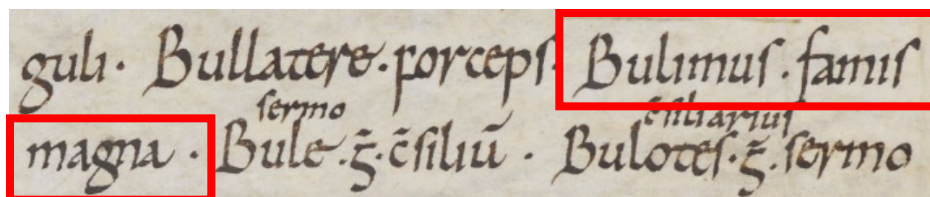 guli · Bullatere · porceps · Bulimus · famis
sermo c̄siliarius
magna · Bule · ḡ · c̄siliū · Bulotes · ḡ · sermo